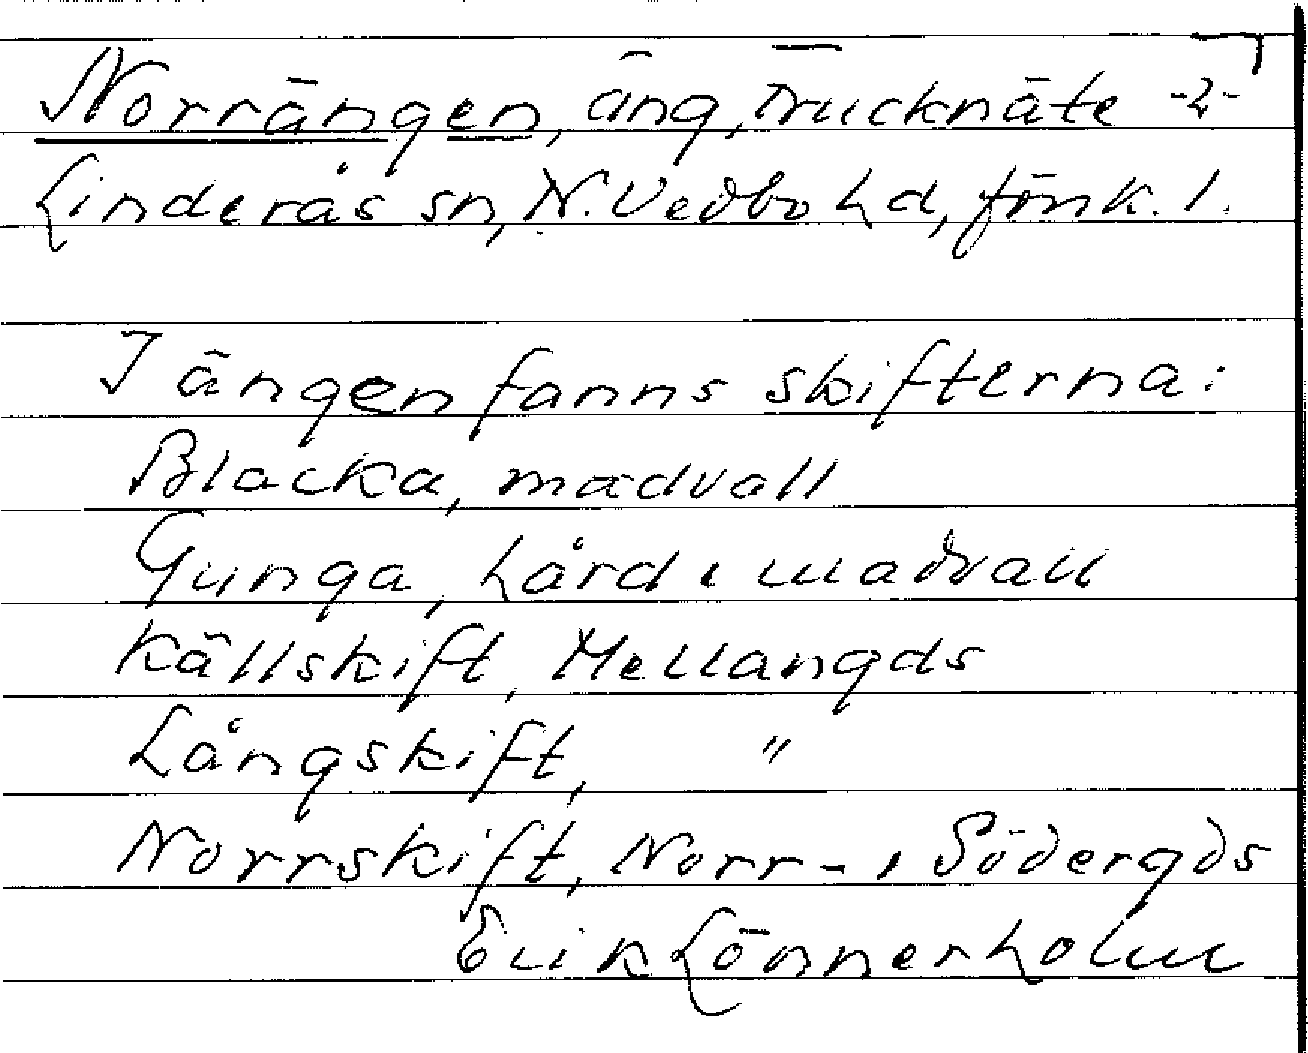 Norrängen, äng, Trucknäte -2-
Linderås sn, N. Vedbo hd, Jönk. l.
I ängen fanns skifterna:
Blacka, madvall
Gunga, hård, madvall
Källskift, Mellangds
Långskift, "
Norrskift, Norr-, Södergds
Erik Lönnerholm